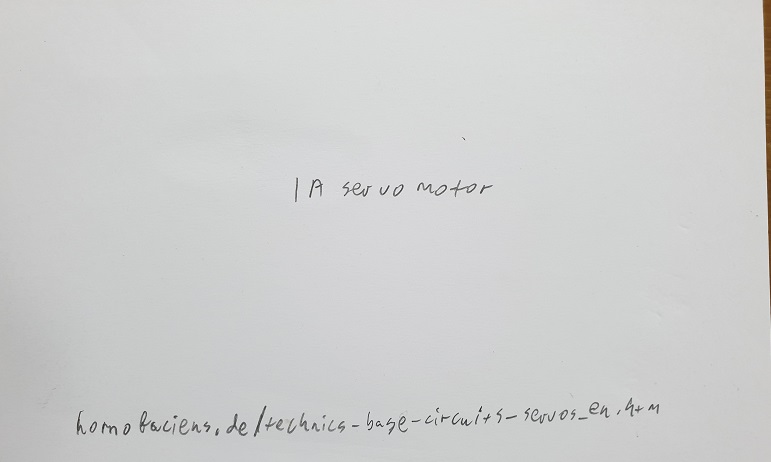 1 A servo motor
homofaciens.de/technics-base-circuits-servos_en.htm